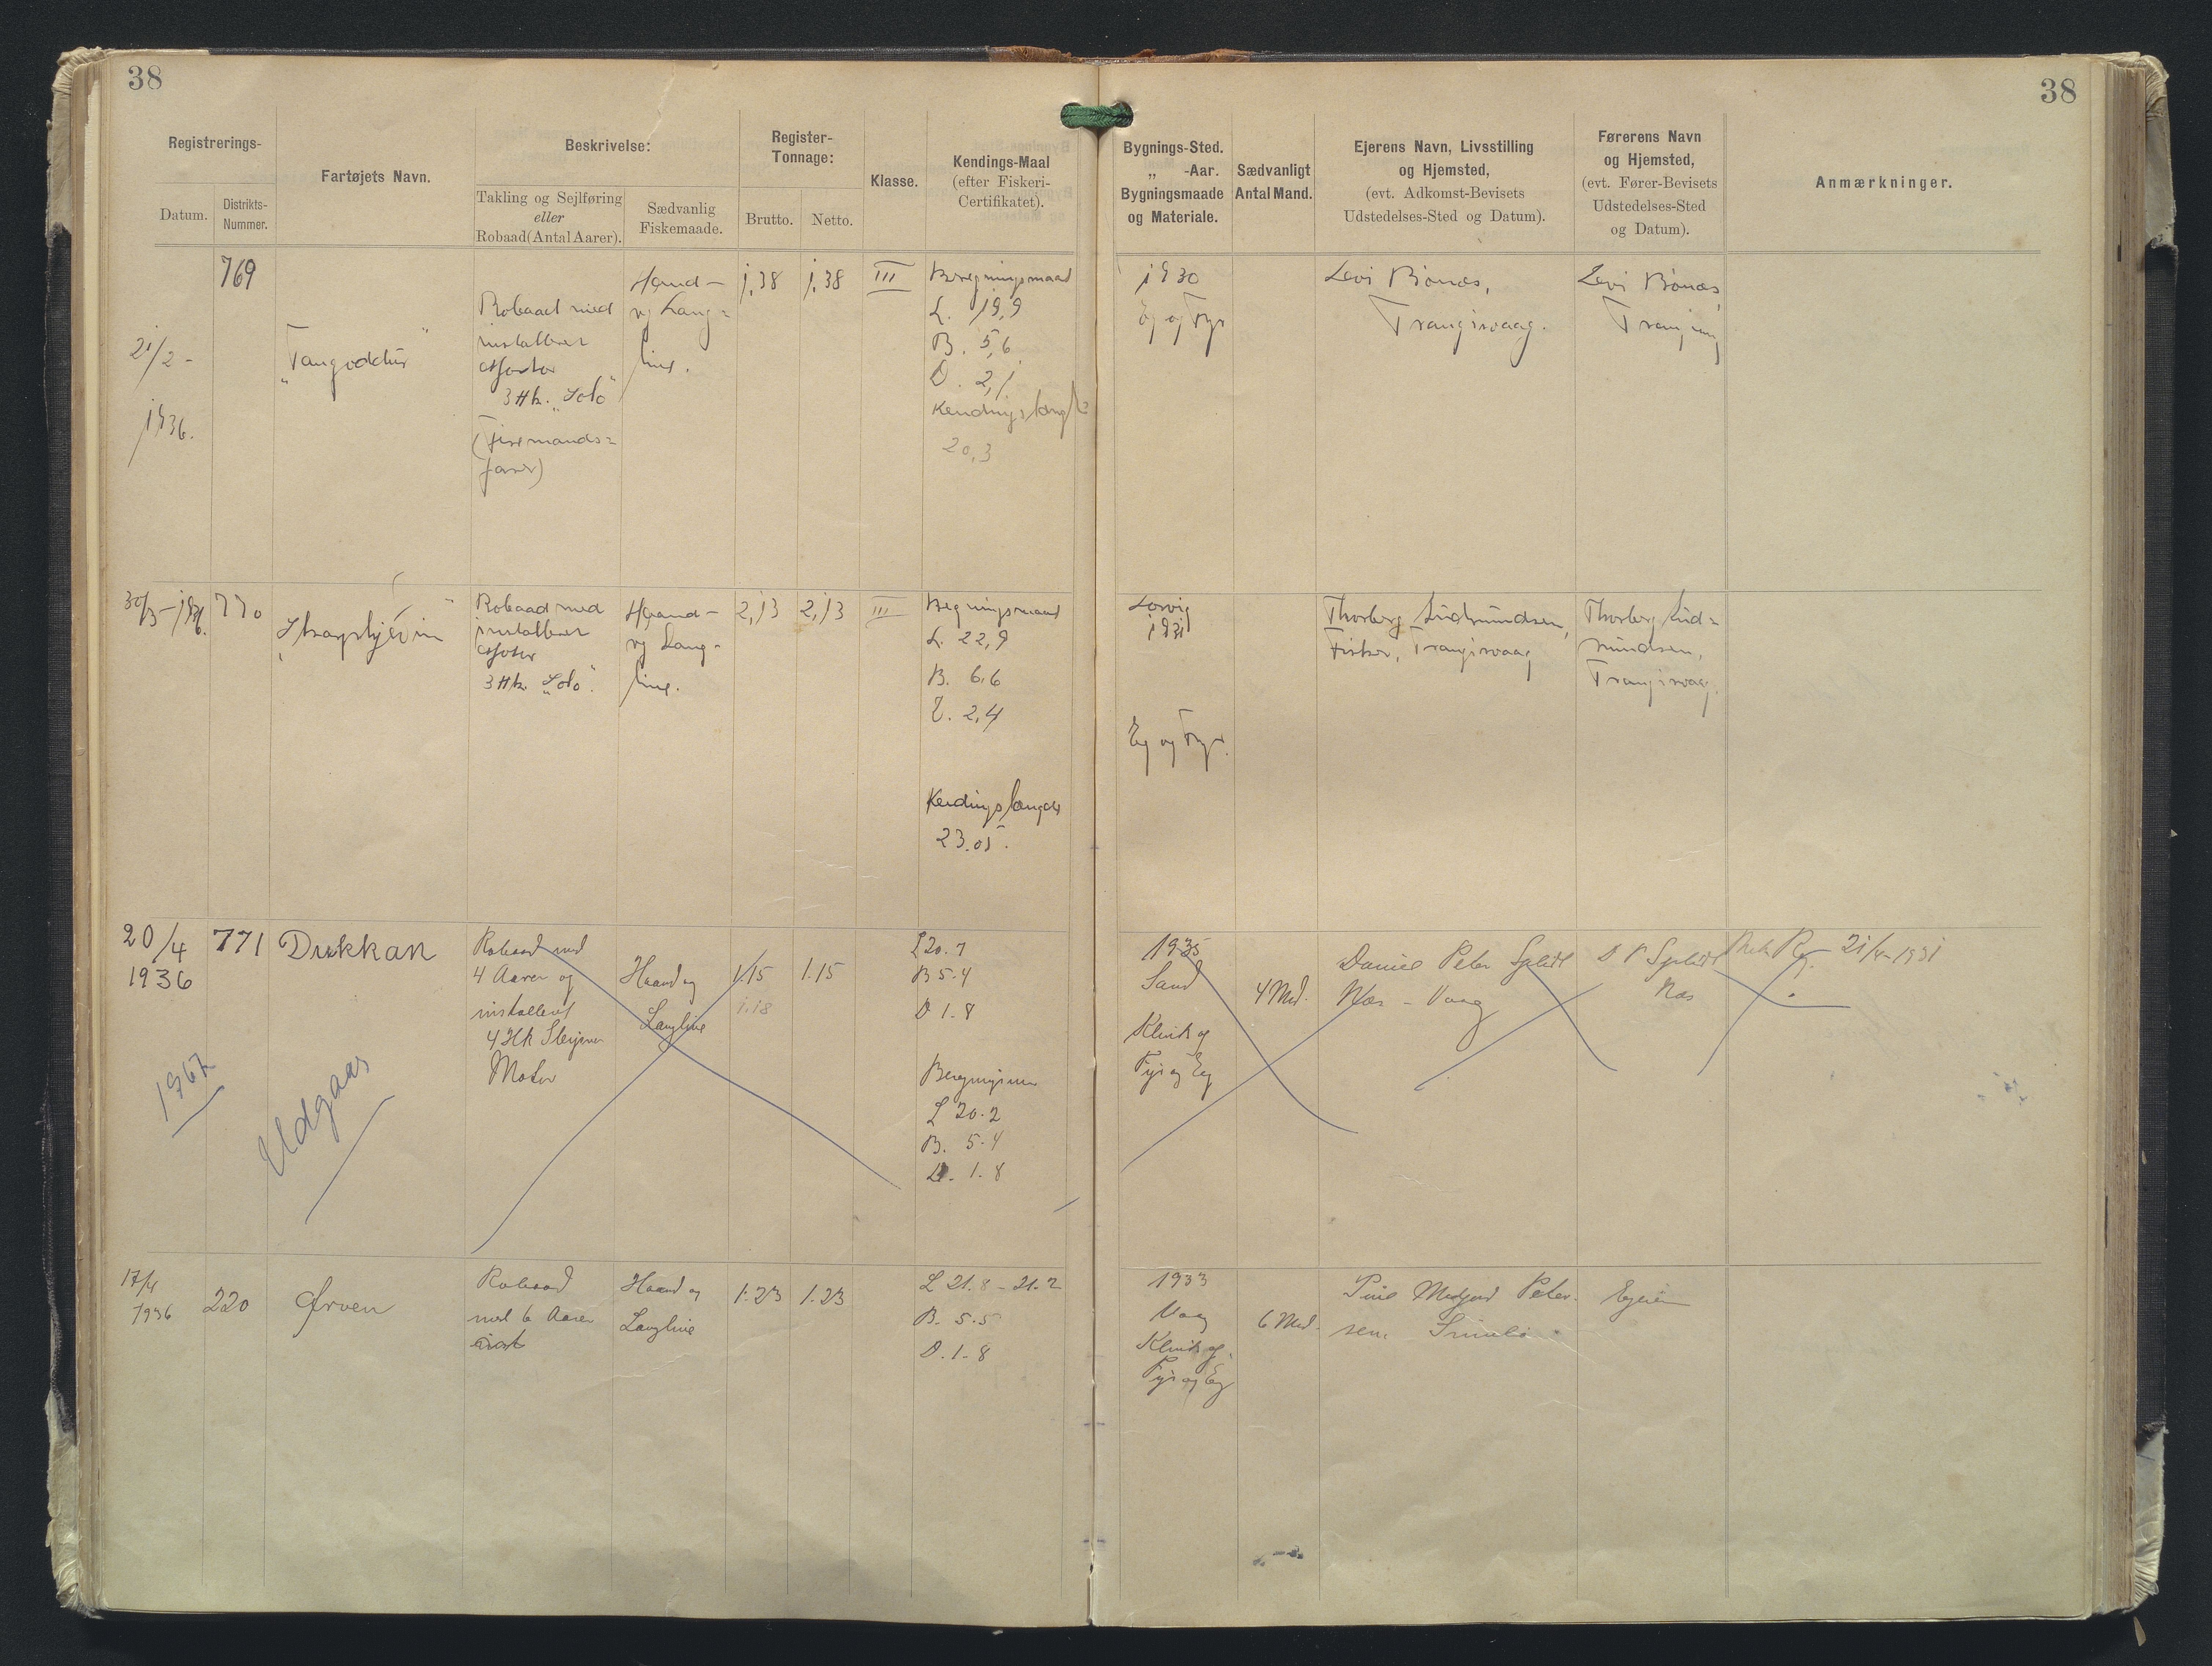 38
38
Registrerings-
Datum.
Distrikts-
Nummer.
Fartøjets Navn.
Beskrivelse:
Takling og Sejlføring
eller
Robaad (Antal Aarer).
Sædvanlig
Fiskemaade.
Register-
Tonnage:
Brutto.
Netto.
Klasse.
Kendings-Maal
(efter Fiskeri-
Certifikatet).
Bygnings-Sted.
„ -Aar.
Bygningsmaade
og Materiale.
Sædvanligt
Antal Mand.
Ejerens Navn, Livsstilling
og Hjemsted,
(evt. Adkomst-Bevisets
Udstedelses-Sted og Datum).
Førerens Navn
og Hjemsted,
(evt. Fører-Bevisets
Udstedelses-Sted
og Datum).
Anmærkninger.
21/2 -
1936.
769
Robaad med
installeret
Motor
3 Hk. „Solo"
Haand-
og Lang=
line.
1,38
1,38
III
L. 19,9
B. 5,6
D. 2,1
Kendingslængde
20,3
1930
Eg og Fyr
Levi Bønæs,
Trangisvaag.
Levi Bønæs,
30/3 - 1936.
770
Robaad med
installeret
Motor
3 Hk. „Solo".
Haand-
og Lang-
line.
2,13
2,13
III
L. 22,9
B. 6,6
D. 2,4
Kendingslængde
23.05.
1931
Eg og Fyr.
Fisker, Trangisvaag
Trangisvaag.
20/4
1936
771
Drekkan
Robaad med
4 Aarer og
installeret
4 Hk
Motor
Haand og
Langline
1.15
1.18
1.15
L 20.7
B 5.4
D 1.8
L 20.2
B. 5.4
D. 1.8
1935
Sand
Klink af
Fyr og Eg
4 Md.
Daniel Peter Splidt
Næs - Vaag
D P Splidt
Næs
1967
Udgaar
17/4
1936
220
Ørven
Robaad
med 6 Aarer
Haand og
Langline
1.23
1.23
L 21.8 - 21.2
B. 5.5
D. 1.8
1933
Vaag
Klink af
Fyr og Eg
6 Md.
Peter-
sen.
Ejeren